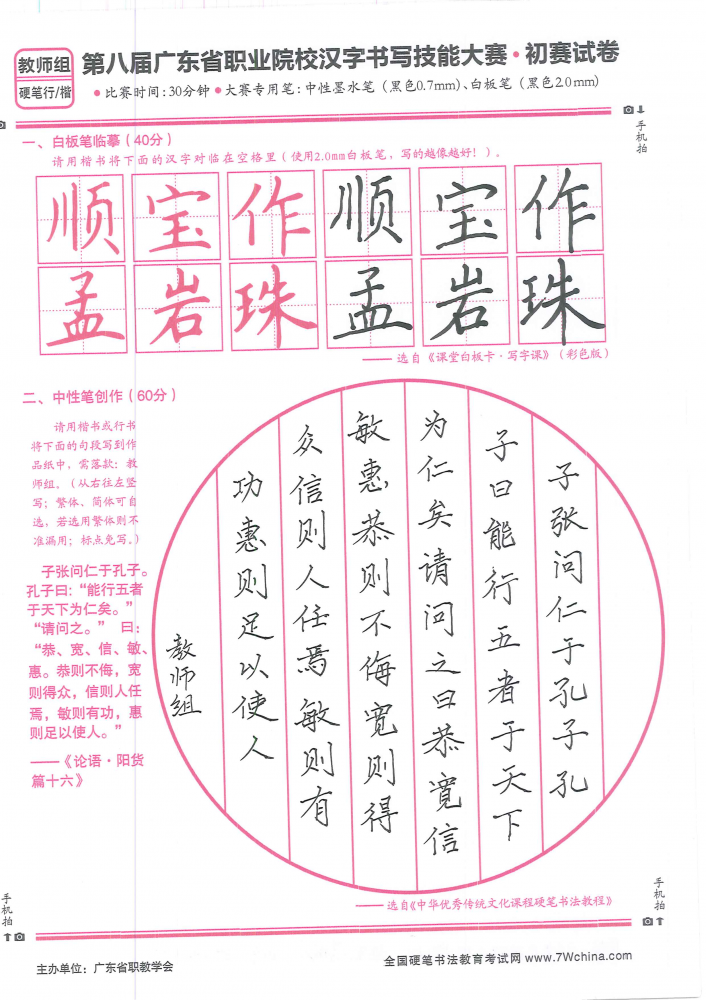 教师组
硬笔行/楷
第八届广东省职业院校汉字书写技能大赛·初赛试卷
●比赛时间:30分钟●大赛专用笔:中性墨水笔(黑色0.7mm)、白板笔(黑色2.0mm)
手机拍
一、白板笔临摹(40分)
请用楷书将下面的汉字对临在空格里(使用2.0mm白板笔,写的越像越好!)。
顺宝作顺宝作
孟岩珠孟岩珠
——选自《课堂白板卡·写字课》(彩色版)
二、中性笔创作(60分)
请用楷书或行书
将下面的句段写到作
品纸中,需落款:教
师组。(从右往左竖
写;繁体、简体可自
选,若选用繁体则不
准漏用;标点免写。)
子张问仁于孔子。
孔子曰:“能行五者
于天下为仁矣。”
“请问之。” 曰:
“恭、宽、信、敏、
惠。恭则不侮,宽
则得众,信则人任
焉,敏则有功,惠
则足以使人。”
——《论语·阳货
篇十六》
子张问仁于孔子孔
子曰能行五者于天下
为仁矣请问之曰恭宽信
敏惠恭则不侮宽则得
众信则人任焉敏则有
功惠则足以使人
教师组
——选自《中华优秀传统文化课程硬笔书法教程》
手机拍
手机拍
主办单位:广东省职教学会
全国硬笔书法教育考试网 www.7Wchina.com